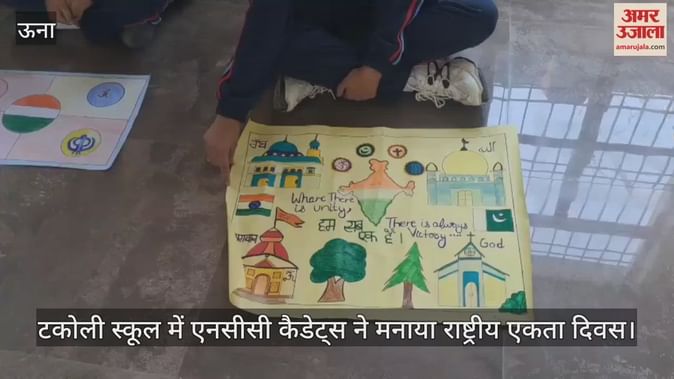 ऊना
अमर
उजाला
amarujala.com
रब
الله
Where There
is unity,
There is always
Victory....
हम सब
एक हैं।
भगवान
God
ॐ
टकोली स्कूल में एनसीसी कैडेट्स ने मनाया राष्ट्रीय एकता दिवस।